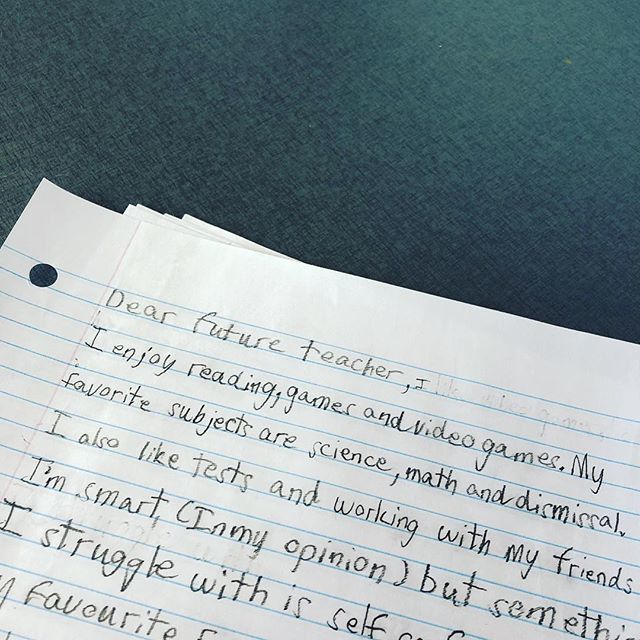 Dear future teacher, I
I enjoy reading, games and video games. My
favorite subjects are science, math and dismissal.
I also like tests and working with my friends
I'm smart (In my opinion) but somethi
I struggle with is self
Favourite